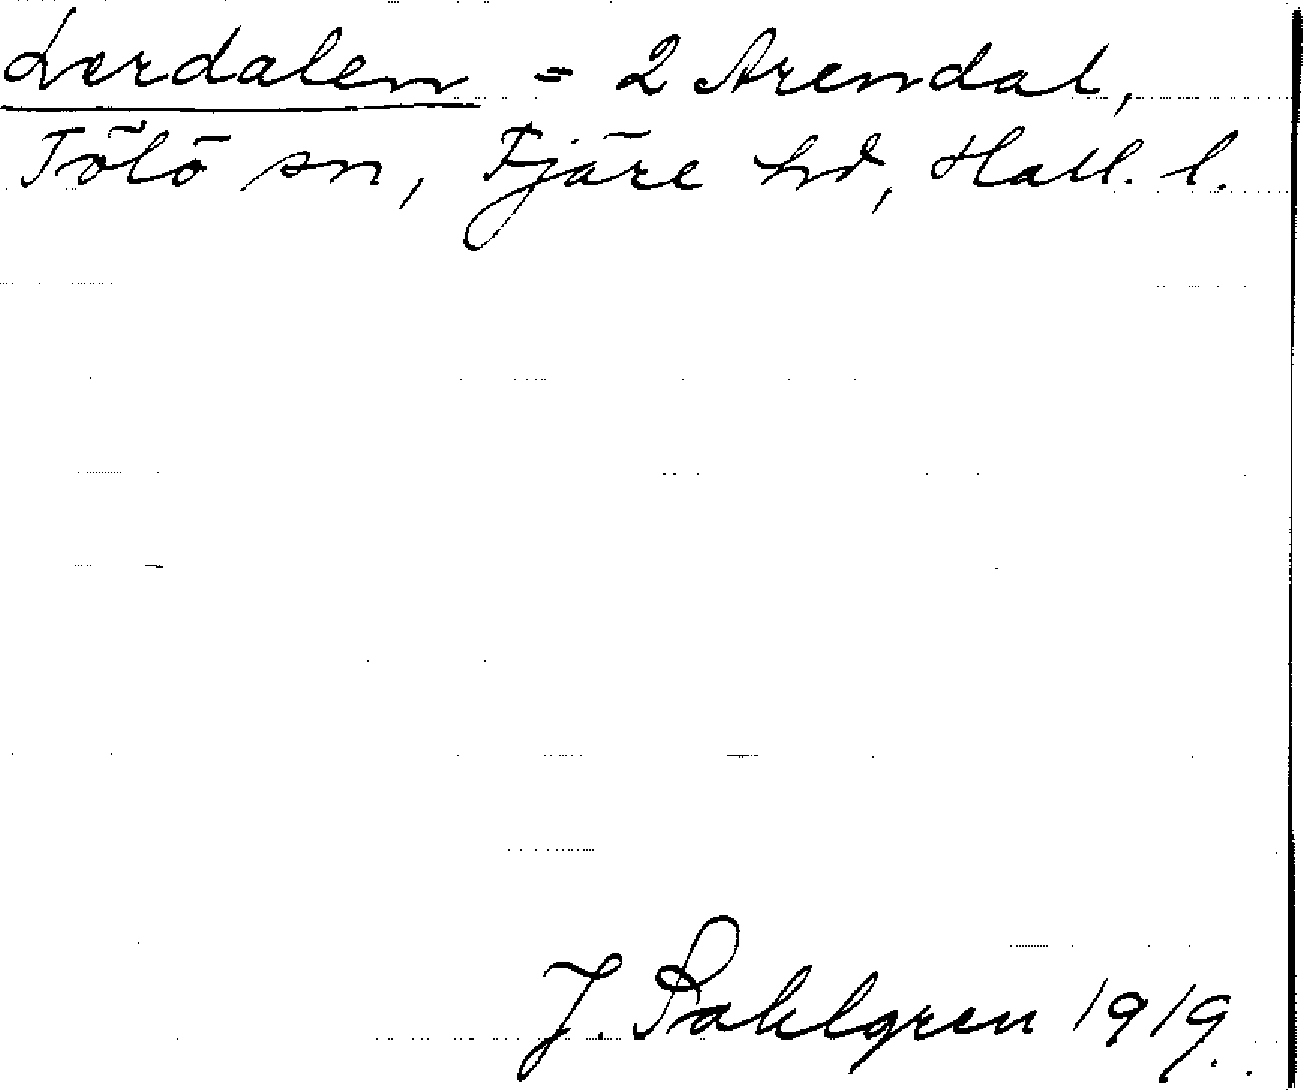 Lerdalen = 2 Arendal,
Tölö sn, Fjäre hd, Hall. l.
J. Sahlgren 1919.